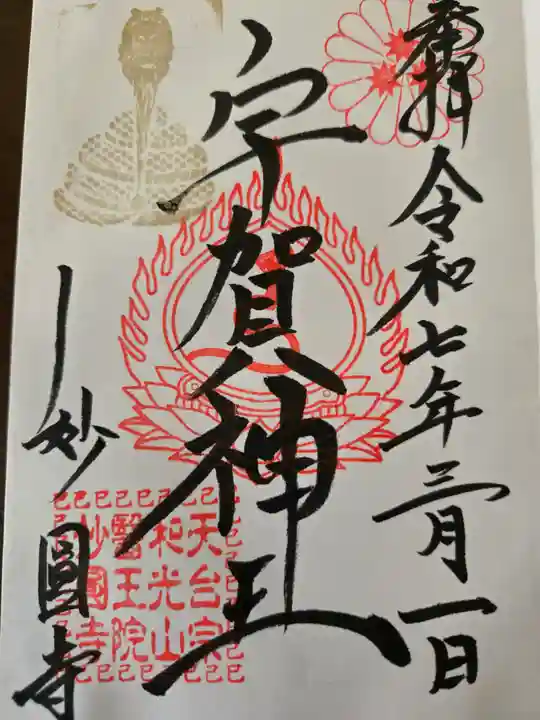 奉拝
令和七年三月一日
宇賀神王
妙圓寺
天台宗
和光山
醫王院
妙圓寺
巳巳巳巳巳巳巳